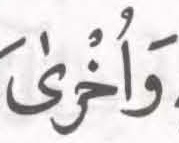 وَأُخْرٰى